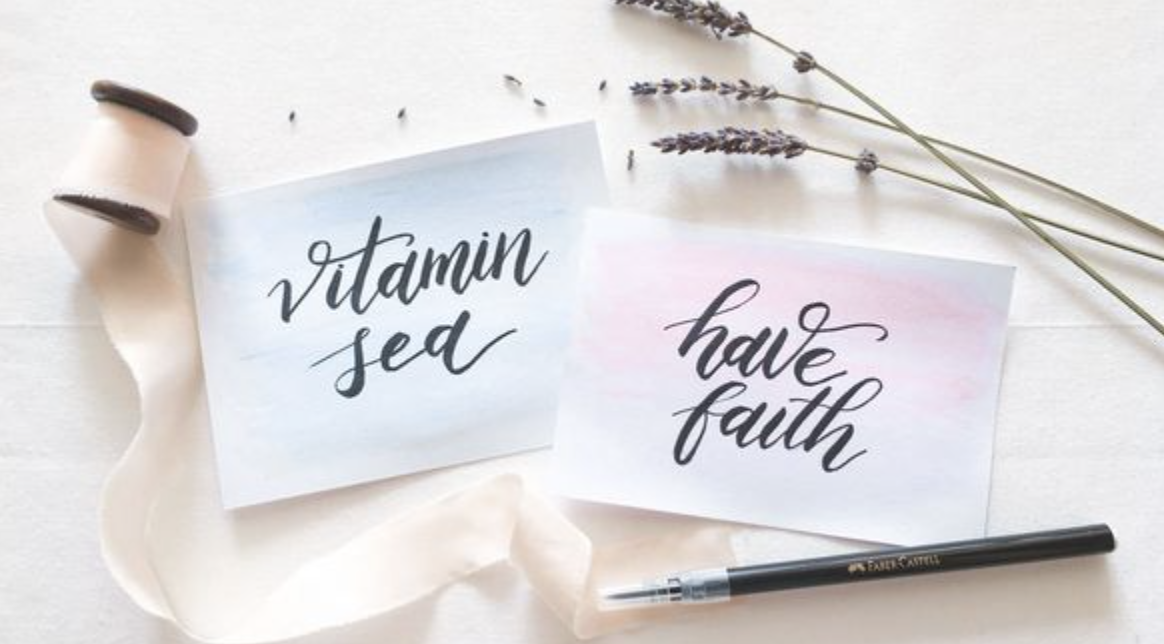 vitamin
sea
have
faith
FABER-CASTELL